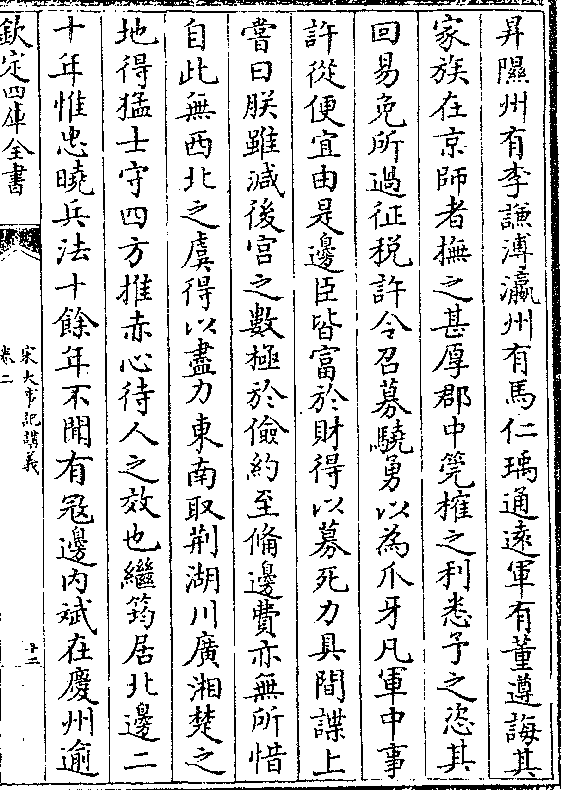 昇隰州有李謙溥瀛州有馬仁瑀通逺軍有董遵誨其
家族在京師者撫之甚厚郡中筦榷之利悉予之恣其
回易免所過征税許令召募驍勇以為爪牙凡軍中事
許從便宜由是邊臣皆富於財得以募死力具間諜上
嘗曰朕雖減後宮之數極於儉約至備邊費亦無所惜
自此無西北之虞得以盡力東南取荆湖川廣湘楚之
地得猛士守四方推赤心待人之效也繼筠居北邊二
十年惟忠曉兵法十餘年不聞有冦邊内斌在慶州逾
欽定四庫全書
宋大事記講義
卷二
十二